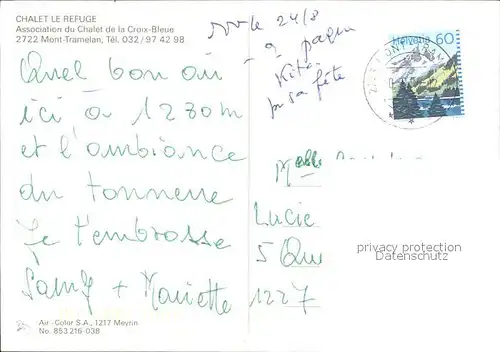 CHALET LE REFUGE
Association du Chalet de la Croix-Bleue
2722 Mont-Tramelan, Tél. 032 / 97 42 98
le 24/8
à
sa fête
Helvetia 60
Quel bon air
ici à 1230 m
et l'ambiance
du tonnerre
Je t'embrasse
+ Mariette
Lucie
5
1227
privacy protection
Datenschutz
Air - Color S.A., 1217 Meyrin
No. 853 216-038